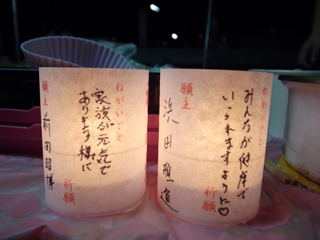 ねがいごと
家族が元気で
あります様に
祈願
願主 前田昭博
ねがいごと
みんなが健康で
いられますように♡
祈願
願主
浜田順道